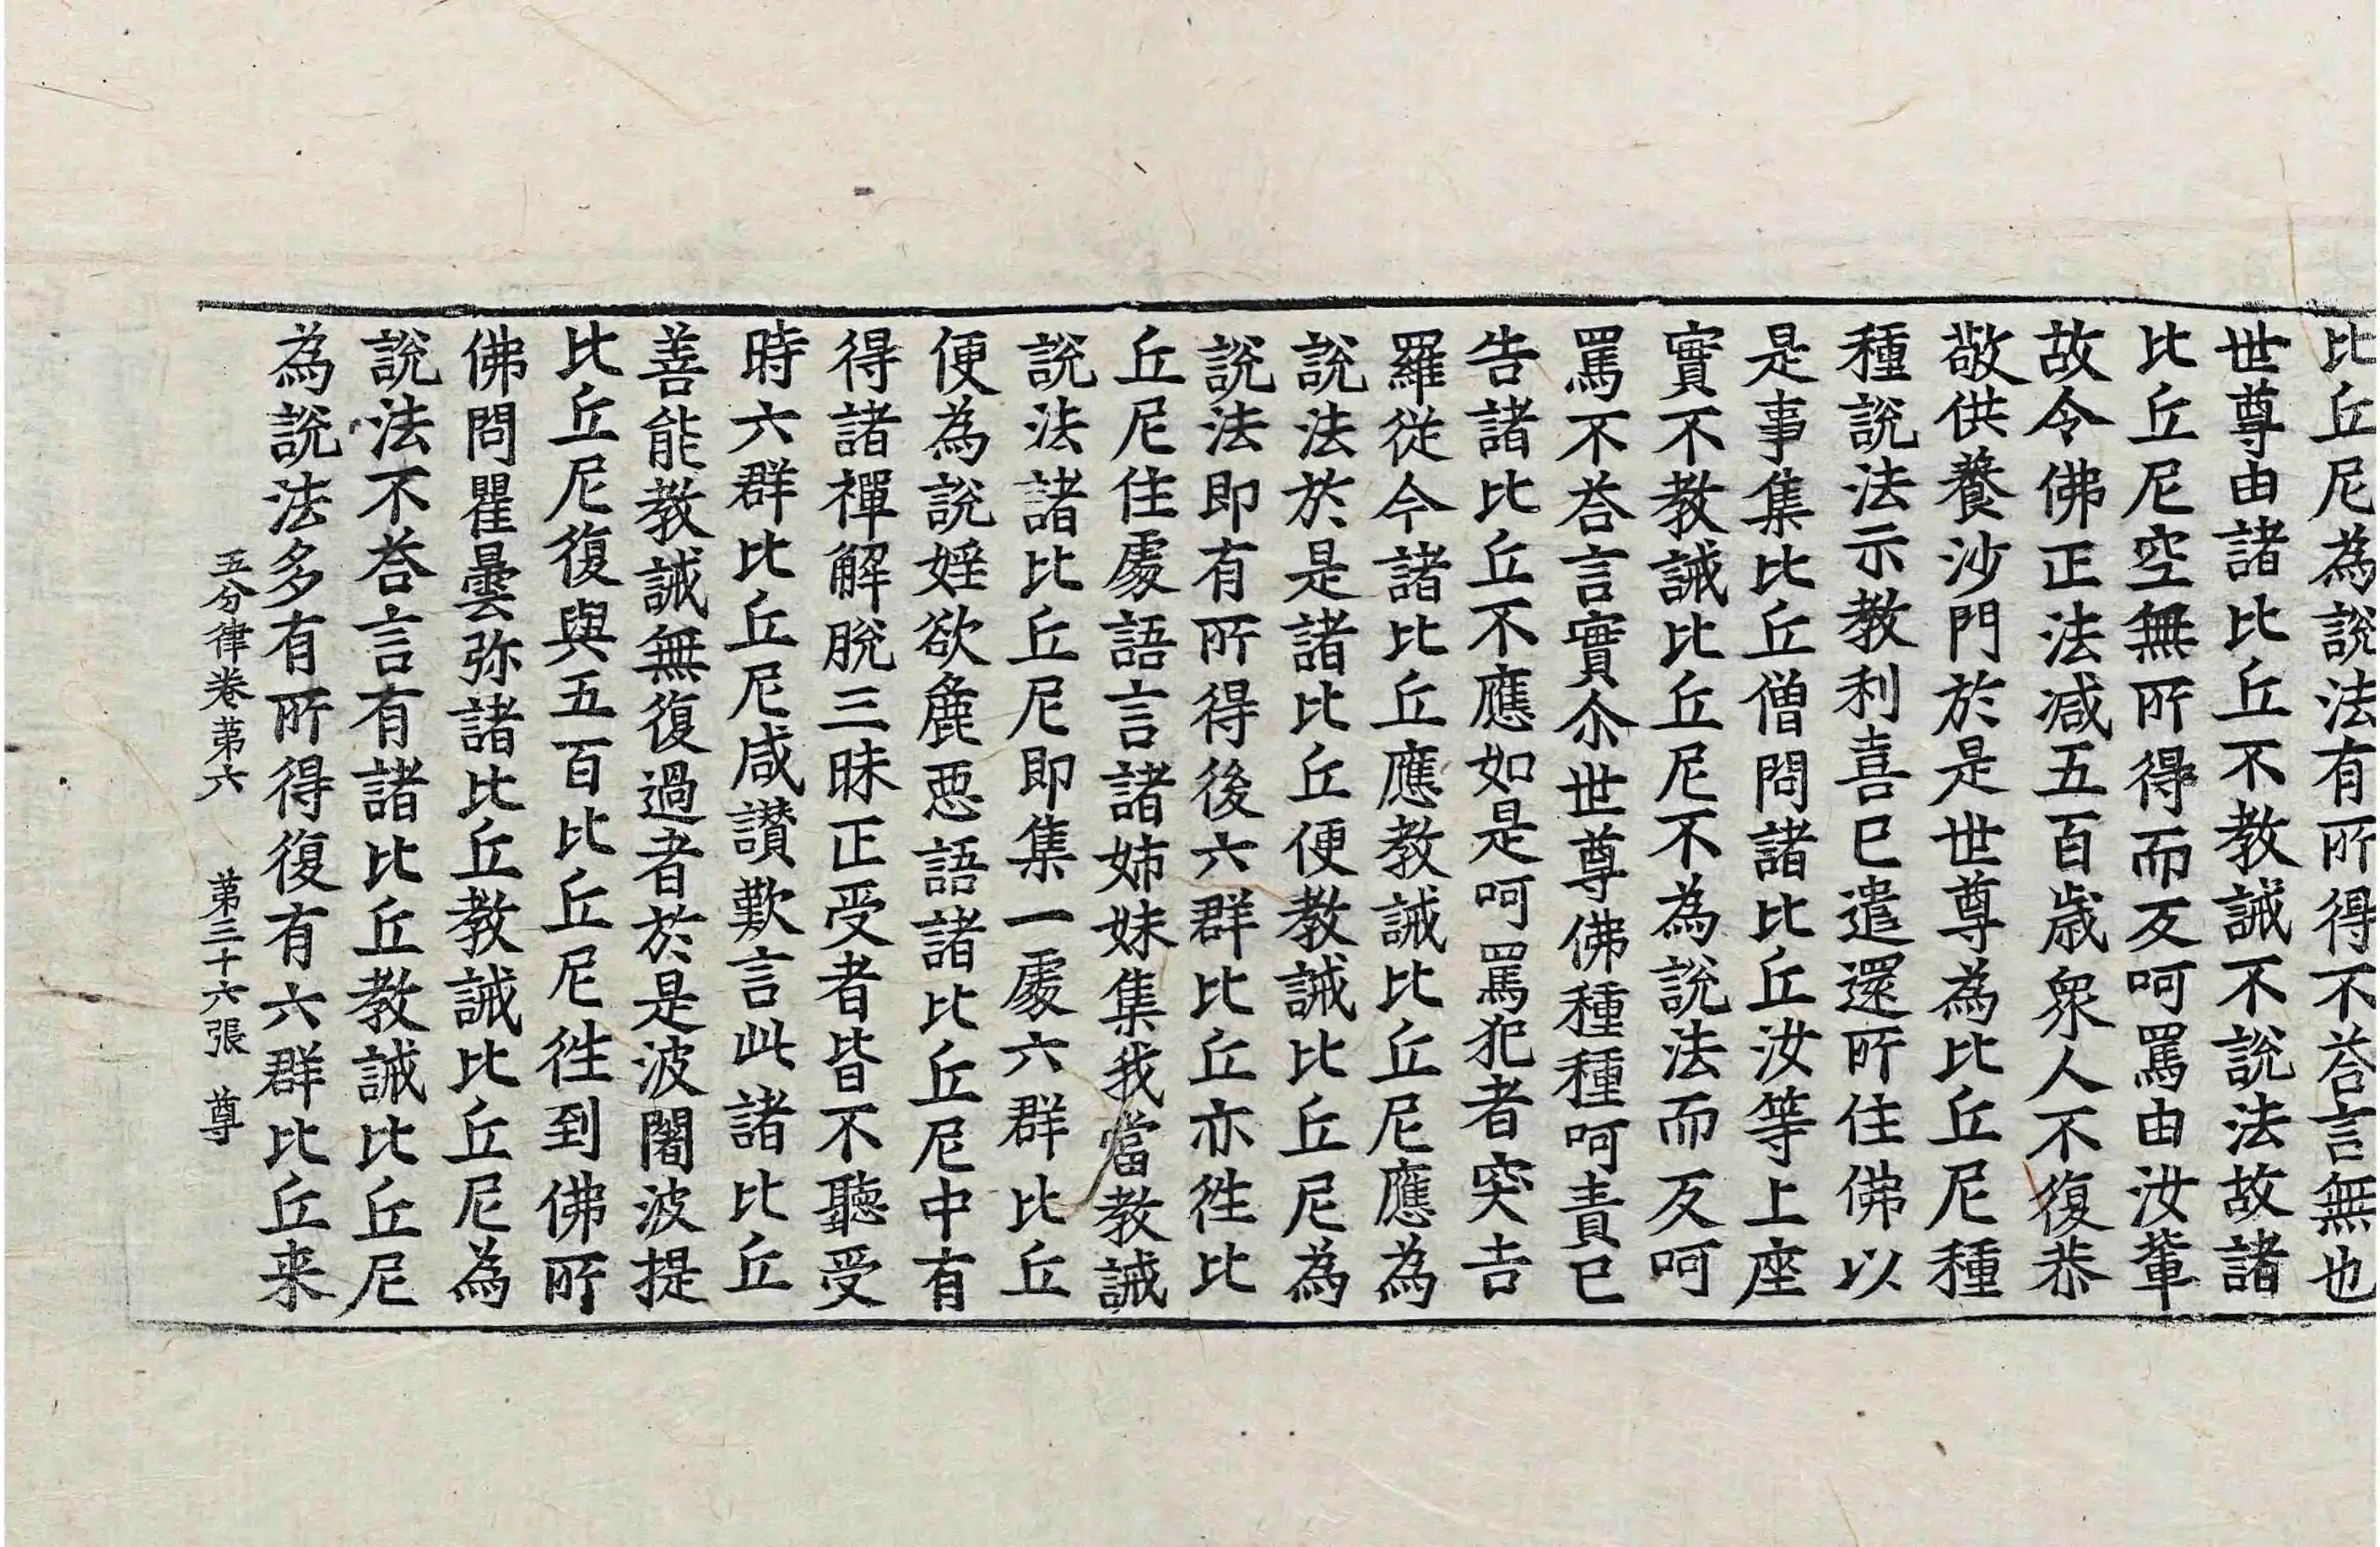 比丘尼為說法有所得不荅言無也
世尊由諸比丘不教誡不說法故諸
比丘尼空無所得而反呵罵由汝輩
故令佛正法減五百歲衆人不復恭
敬供養沙門於是世尊為比丘尼種
種說法示教利喜已遣還所住佛以
是事集比丘僧問諸比丘汝等上座
實不教誡比丘尼不為說法而反呵
罵不荅言實尒世尊佛種種呵責已
告諸比丘不應如是呵罵犯者突吉
羅從今諸比丘應教誡比丘尼應為
說法於是諸比丘便教誡比丘尼為
說法即有所得後六群比丘亦徃比
丘尼住處語言諸姊妹集我當教誡
說法諸比丘尼即集一處六群比丘
便為說婬欲麁惡語諸比丘尼中有
得諸禪解脫三昧正受者皆不聽受
時六群比丘尼咸讚歎言此諸比丘
善能教誡無復過者於是波闍波提
比丘尼復與五百比丘尼徃到佛所
佛問瞿曇弥諸比丘教誡比丘尼為
說法不荅言有諸比丘教誡比丘尼
為說法多有所得復有六群比丘来
五分律卷苐六 苐三十六張 尊